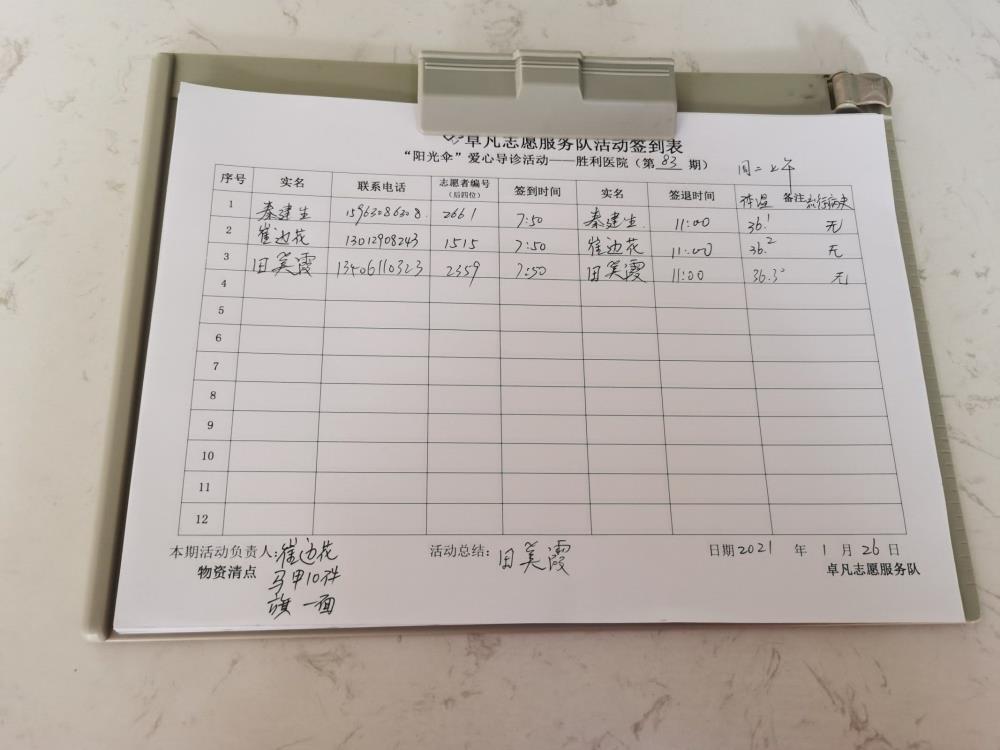 卓凡志愿服务队活动签到表
“阳光伞”爱心导诊活动——胜利医院（第 83 期） 周二上午
序号 实名 联系电话 志愿者编号（后四位） 签到时间 实名 签退时间 体温 备注 流行病史
1 秦建生 15963086308 2661 7:50 秦建生 11:00 36.1 无
2 崔边花 13012908243 1515 7:50 崔边花 11:00 36.2 无
3 田美霞 13406110323 2359 7:50 田美霞 11:00 36.3° 无
4
5
6
7
8
9
10
11
12
本期活动负责人:崔边花 活动总结: 田美霞 日期 2021 年 1 月 26 日
物资清点 马甲10件 卓凡志愿服务队
旗 一面